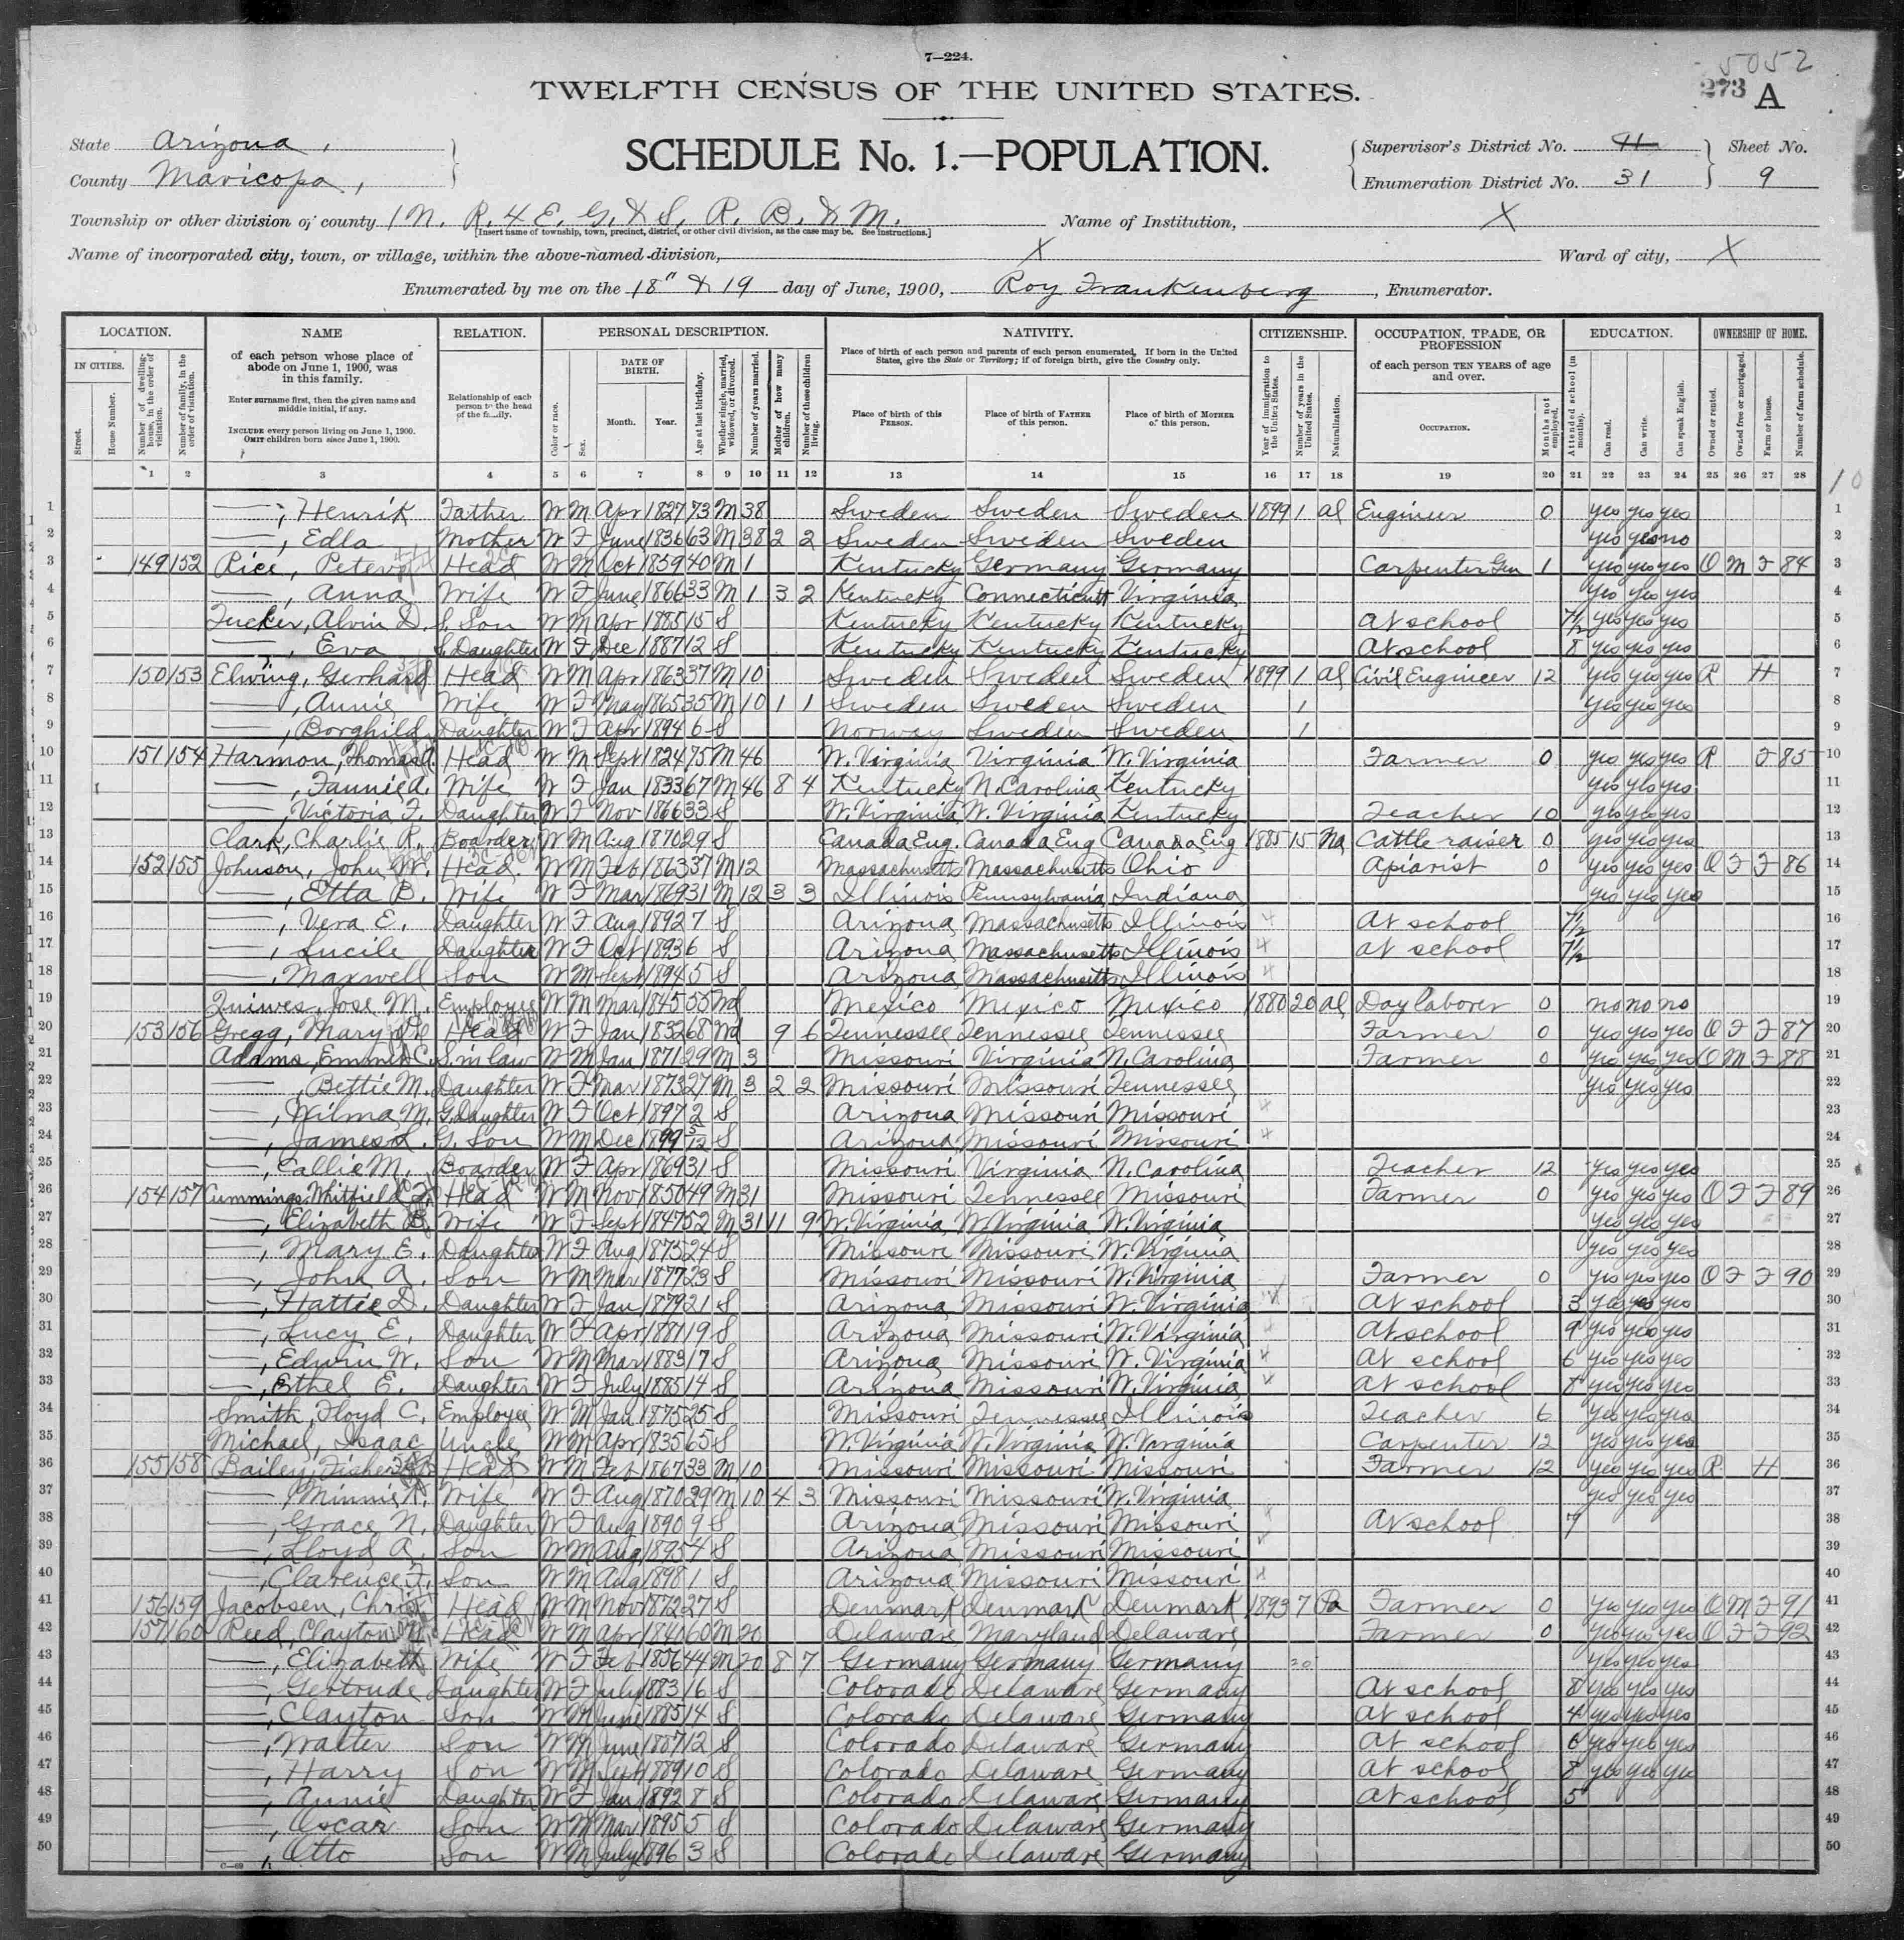 7—224.
5052
TWELFTH CENSUS OF THE UNITED STATES.
273 A
SCHEDULE No. 1.—POPULATION.
State Arizona,
County Maricopa,
Supervisor's District No. 41
Enumeration District No. 31
Sheet No.
9
Township or other division of county 1 N. R. 4 E. G. & S. R. B. & M.
[Insert name of township, town, precinct, district, or other civil division, as the case may be. See instructions.]
Name of Institution, X
Name of incorporated city, town, or village, within the above-named division, X
Ward of city, X
Enumerated by me on the 18" & 19 day of June, 1900, Roy Frankenberg, Enumerator.
LOCATION. NAME RELATION. PERSONAL DESCRIPTION. NATIVITY. CITIZENSHIP. OCCUPATION, TRADE, OR PROFESSION EDUCATION. OWNERSHIP OF HOME.
IN CITIES.
Street.
House Number.
Number of dwelling-house, in the order of visitation.
Number of family, in the order of visitation.
of each person whose place of abode on June 1, 1900, was in this family.
Enter surname first, then the given name and middle initial, if any.
INCLUDE every person living on June 1, 1900.
OMIT children born since June 1, 1900.
Relationship of each person to the head of the family.
Color or race.
Sex.
DATE OF BIRTH.
Month.
Year.
Age at last birthday.
Whether single, married, widowed, or divorced.
Number of years married.
Mother of how many children.
Number of these children living.
Place of birth of each person and parents of each person enumerated. If born in the United States, give the State or Territory; if of foreign birth, give the Country only.
Place of birth of this PERSON.
Place of birth of FATHER of this person.
Place of birth of MOTHER of this person.
Year of immigration to the United States.
Number of years in the United States.
Naturalization.
of each person TEN YEARS of age and over.
OCCUPATION.
Months not employed.
Attended school (in months).
Can read.
Can write.
Can speak English.
Owned or rented.
Owned free or mortgaged.
Farm or house.
Number of farm schedule.
1 2 3 4 5 6 7 8 9 10 11 12 13 14 15 16 17 18 19 20 21 22 23 24 25 26 27 28
10
1 —, Henrik Father W M Apr 1827 73 M 38 Sweden Sweden Sweden 1899 1 al Engineer 0 yes yes yes 1
2 —, Edla Mother W F June 1836 63 M 38 2 2 Sweden Sweden Sweden yes yes no 2
3 149 152 Rice, Peter Head W M Oct 1859 40 M 1 Kentucky Germany Germany Carpenter Gen 1 yes yes yes O M F 84 3
4 —, Anna Wife W F June 1866 33 M 1 3 2 Kentucky Connecticutt Virginia yes yes yes 4
5 Tucker, Alvin D. S. Son W M Apr 1885 15 S Kentucky Kentucky Kentucky At school 7½ yes yes yes 5
6 —, Eva S. Daughter W F Dec 1887 12 S Kentucky Kentucky Kentucky At school 8 yes yes yes 6
7 150 153 Elwing, Gerhard Head W M Apr 1863 37 M 10 Sweden Sweden Sweden 1899 1 al Civil Engineer 12 yes yes yes R H 7
8 —, Annie Wife W F May 1865 35 M 10 1 1 Sweden Sweden Sweden 1 yes yes yes 8
9 —, Borghild Daughter W F Apr 1894 6 S Norway Sweden Sweden 1 9
10 151 154 Harmon, Thomas A. Head W M Sept 1824 75 M 46 W. Virginia Virginia W. Virginia Farmer 0 yes yes yes R F 85 10
11 —, Fannie A. Wife W F Jan 1833 67 M 46 8 4 Kentucky N. Carolina Kentucky yes yes yes 11
12 —, Victoria F. Daughter W F Nov 1866 33 S W. Virginia W. Virginia Kentucky Teacher 10 yes yes yes 12
13 Clark, Charlie R. Boarder W M Aug 1870 29 S Canada Eng. Canada Eng Canada Eng 1885 15 Na Cattle raiser 0 yes yes yes 13
14 152 155 Johnson, John W. Head W M Feb 1863 37 M 12 Massachusetts Massachusetts Ohio Apiarist 0 yes yes yes O F F 86 14
15 —, Etta B. Wife W F Mar 1869 31 M 12 3 3 Illinois Pennsylvania Indiana yes yes yes 15
16 —, Vera E. Daughter W F Aug 1892 7 S Arizona Massachusetts Illinois At school 7½ 16
17 —, Lucile Daughter W F Oct 1893 6 S Arizona Massachusetts Illinois at school 7½ 17
18 —, Maxwell Son W M Sept 1894 5 S Arizona Massachusetts Illinois 18
19 Quiwes, Jose M. Employee W M Mar 1845 55 Wd Mexico Mexico Mexico 1880 20 al Day laborer 0 no no no 19
20 153 156 Gregg, Mary Head W F Jan 1832 68 Wd 9 6 Tennessee Tennessee Tennessee Farmer 0 yes yes yes O F F 87 20
21 Adams, Emmet C. S. in law W M Jan 1871 29 M 3 Missouri Virginia N. Carolina Farmer 0 yes yes yes O M F 88 21
22 —, Bettie M. Daughter W F Mar 1873 27 M 3 2 2 Missouri Missouri Tennessee yes yes yes 22
23 —, Wilma M. G. Daughter W F Oct 1897 2 S Arizona Missouri Missouri 23
24 —, James L. G. Son W M Dec 1899 5/12 S Arizona Missouri Missouri 24
25 —, Callie M. Boarder W F Apr 1869 31 S Missouri Virginia N. Carolina Teacher 12 yes yes yes 25
26 154 157 Cummings, Whitfield Head W M Nov 1850 49 M 31 Missouri Tennessee Missouri Farmer 0 yes yes yes O F F 89 26
27 —, Elizabeth B. Wife W F Sept 1847 52 M 31 11 9 W. Virginia W. Virginia W. Virginia yes yes yes 27
28 —, Mary E. Daughter W F Aug 1875 24 S Missouri Missouri W. Virginia yes yes yes 28
29 —, John A. Son W M Mar 1877 23 S Missouri Missouri W. Virginia Farmer 0 yes yes yes O F F 90 29
30 —, Hattie D. Daughter W F Jan 1879 21 S Arizona Missouri W. Virginia At school 3 yes yes yes 30
31 —, Lucy E. Daughter W F Apr 1881 19 S Arizona Missouri W. Virginia At school 9 yes yes yes 31
32 —, Edwin W. Son W M Mar 1883 17 S Arizona Missouri W. Virginia At school 6 yes yes yes 32
33 —, Ethel E. Daughter W F July 1885 14 S Arizona Missouri W. Virginia At school 8 yes yes yes 33
34 Smith, Floyd C. Employee W M Jan 1875 25 S Missouri Tennessee Illinois Teacher 6 yes yes yes 34
35 Michael, Isaac Uncle W M Apr 1835 65 S W. Virginia W. Virginia W. Virginia Carpenter 12 yes yes yes 35
36 155 158 Bailey, Fisher Head W M Feb 1867 33 M 10 Missouri Missouri Missouri Farmer 12 yes yes yes R H 36
37 —, Minnie K. Wife W F Aug 1870 29 M 10 4 3 Missouri Missouri W. Virginia yes yes yes 37
38 —, Grace N. Daughter W F Aug 1890 9 S Arizona Missouri Missouri At school 7 38
39 —, Lloyd A. Son W M Aug 1895 4 S Arizona Missouri Missouri 39
40 —, Clarence F. Son W M Aug 1898 1 S Arizona Missouri Missouri 40
41 156 159 Jacobsen, Christ Head W M Nov 1872 27 S Denmark Denmark Denmark 1893 7 Pa Farmer 0 yes yes yes O M F 91 41
42 157 160 Reed, Clayton Head W M Apr 1840 60 M 20 Delaware Maryland Delaware Farmer 0 yes yes yes O F F 92 42
43 —, Elizabeth Wife W F Feb 1856 44 M 20 8 7 Germany Germany Germany 20 yes yes yes 43
44 —, Gertrude Daughter W F July 1883 16 S Colorado Delaware Germany At school 8 yes yes yes 44
45 —, Clayton Son W M June 1885 14 S Colorado Delaware Germany At school 4 yes yes yes 45
46 —, Walter Son W M June 1887 12 S Colorado Delaware Germany At school 6 yes yes yes 46
47 —, Harry Son W M Sept 1889 10 S Colorado Delaware Germany At school 8 yes yes yes 47
48 —, Annie Daughter W F Jan 1892 8 S Colorado Delaware Germany At school 5 48
49 —, Oscar Son W M Mar 1895 5 S Colorado Delaware Germany 49
50 —, Otto Son W M July 1896 3 S Colorado Delaware Germany 50